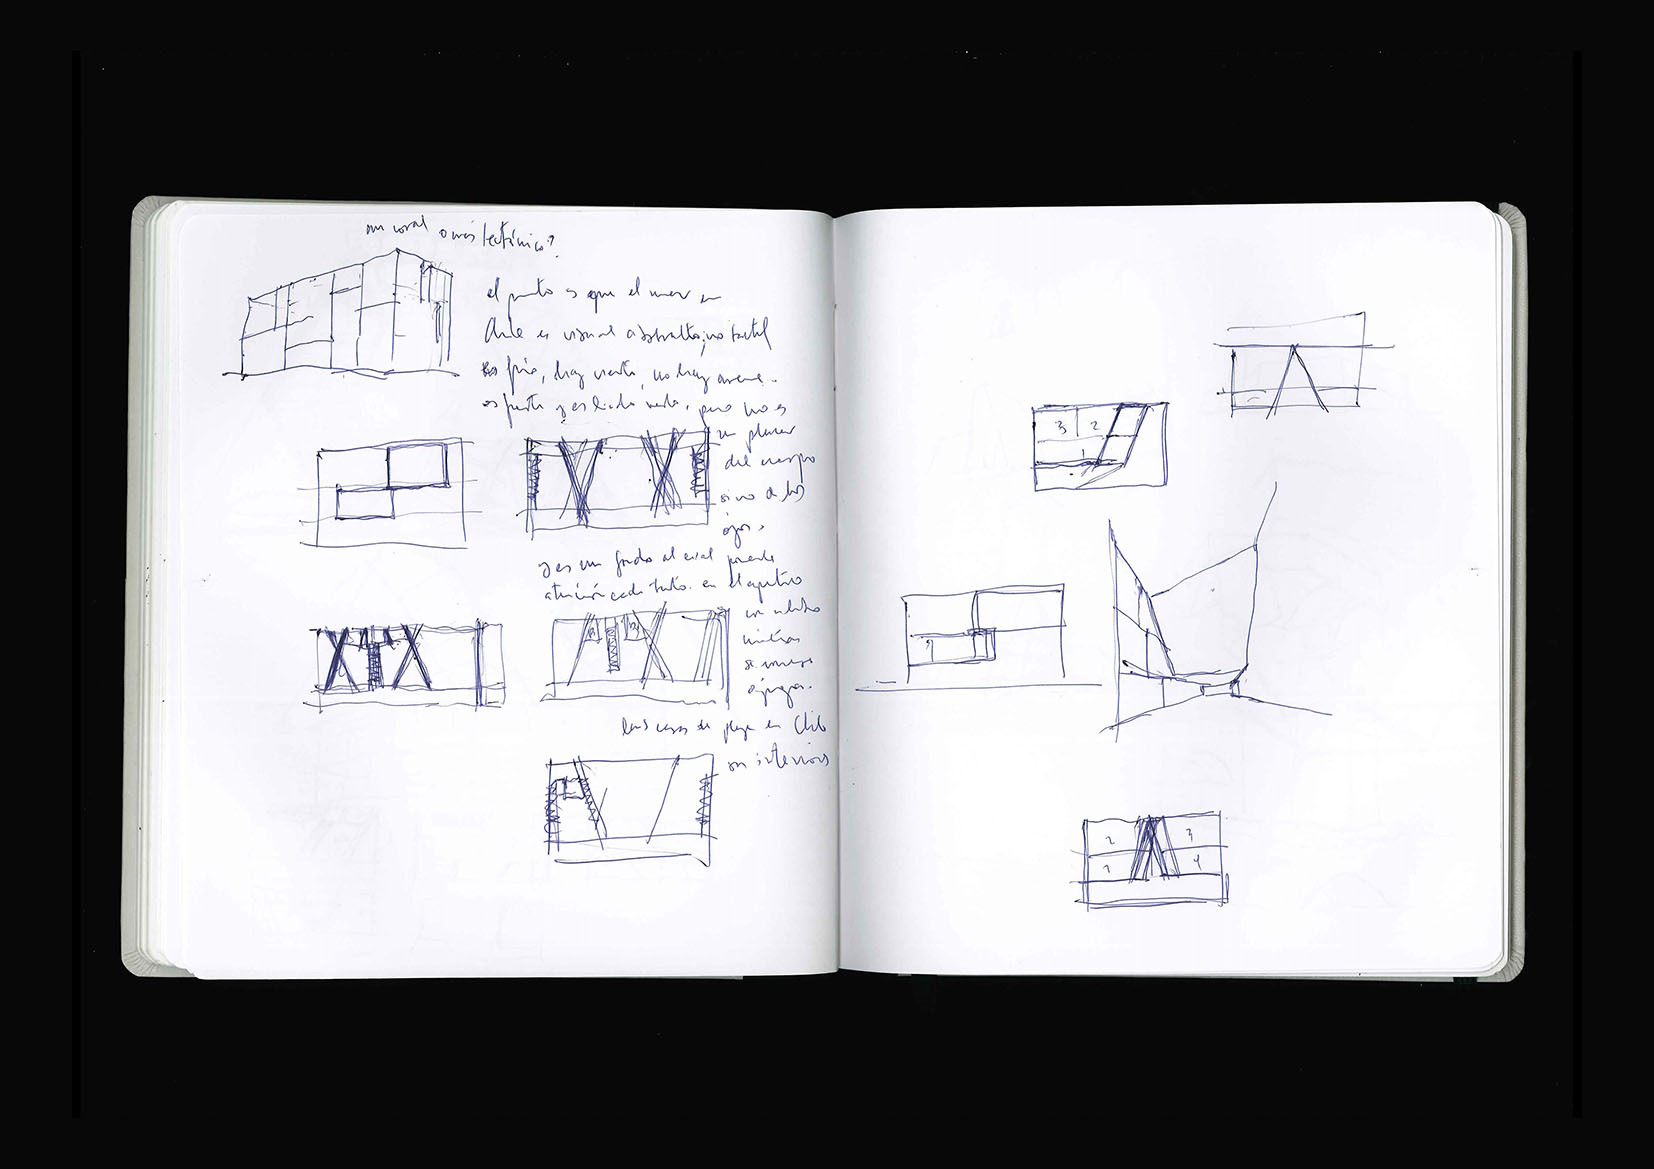 un coral o más tectónico?
el punto es que el mar en
Chile es visual abstracto, no tactil
es frío, hay viento, no hay arena.
es fuerte y es lindo verlo, pero no es
un placer
del cuerpo
sino de los
ojos.
y es un fondo al cual ponerle
atención cada tanto. en el aperitivo
mientras
las casas de playa en Chile
son interiores
3 2
1
2 3
1 4